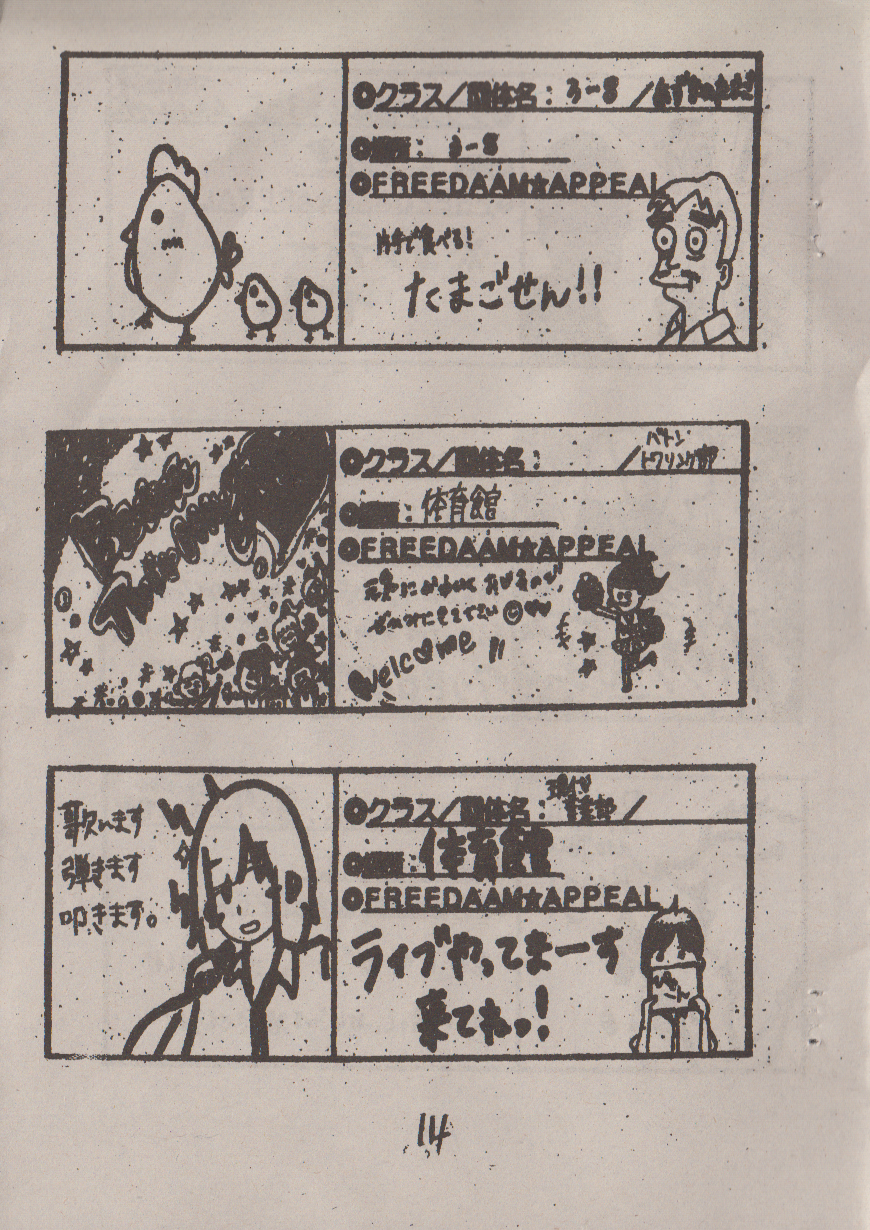 ●クラス/団体名: 3-8 /
●場所: 3-8
●FREEDAAM★APPEAL
片手で食べる!
たまごせん!!
●クラス/団体名: /バトントワリング部
●場所: 体育館
●FREEDAAM★APPEAL
Welcome!!
歌います
弾きます
叩きます。
●クラス/団体名: 現代音楽部/
●場所: 体育館
●FREEDAAM★APPEAL
ライブやってまーす
来てねっ!
14